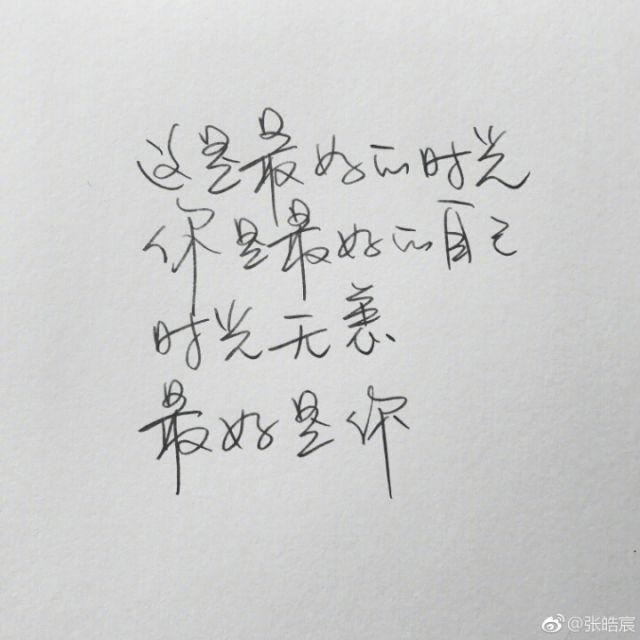 这是最好的时光
你是最好的自己
时光无裹
最好是你
@张皓宸